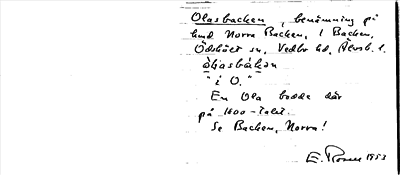 Olasbacken, benämning på
hmd Norra Backen, 1 Backen,
Ödshöct sn, Vedbo hd, Älvsb. l.
"i O."
En Ola bodde där
på 1800-talet.
Se Backen, Norra!
E. Rosen 1953